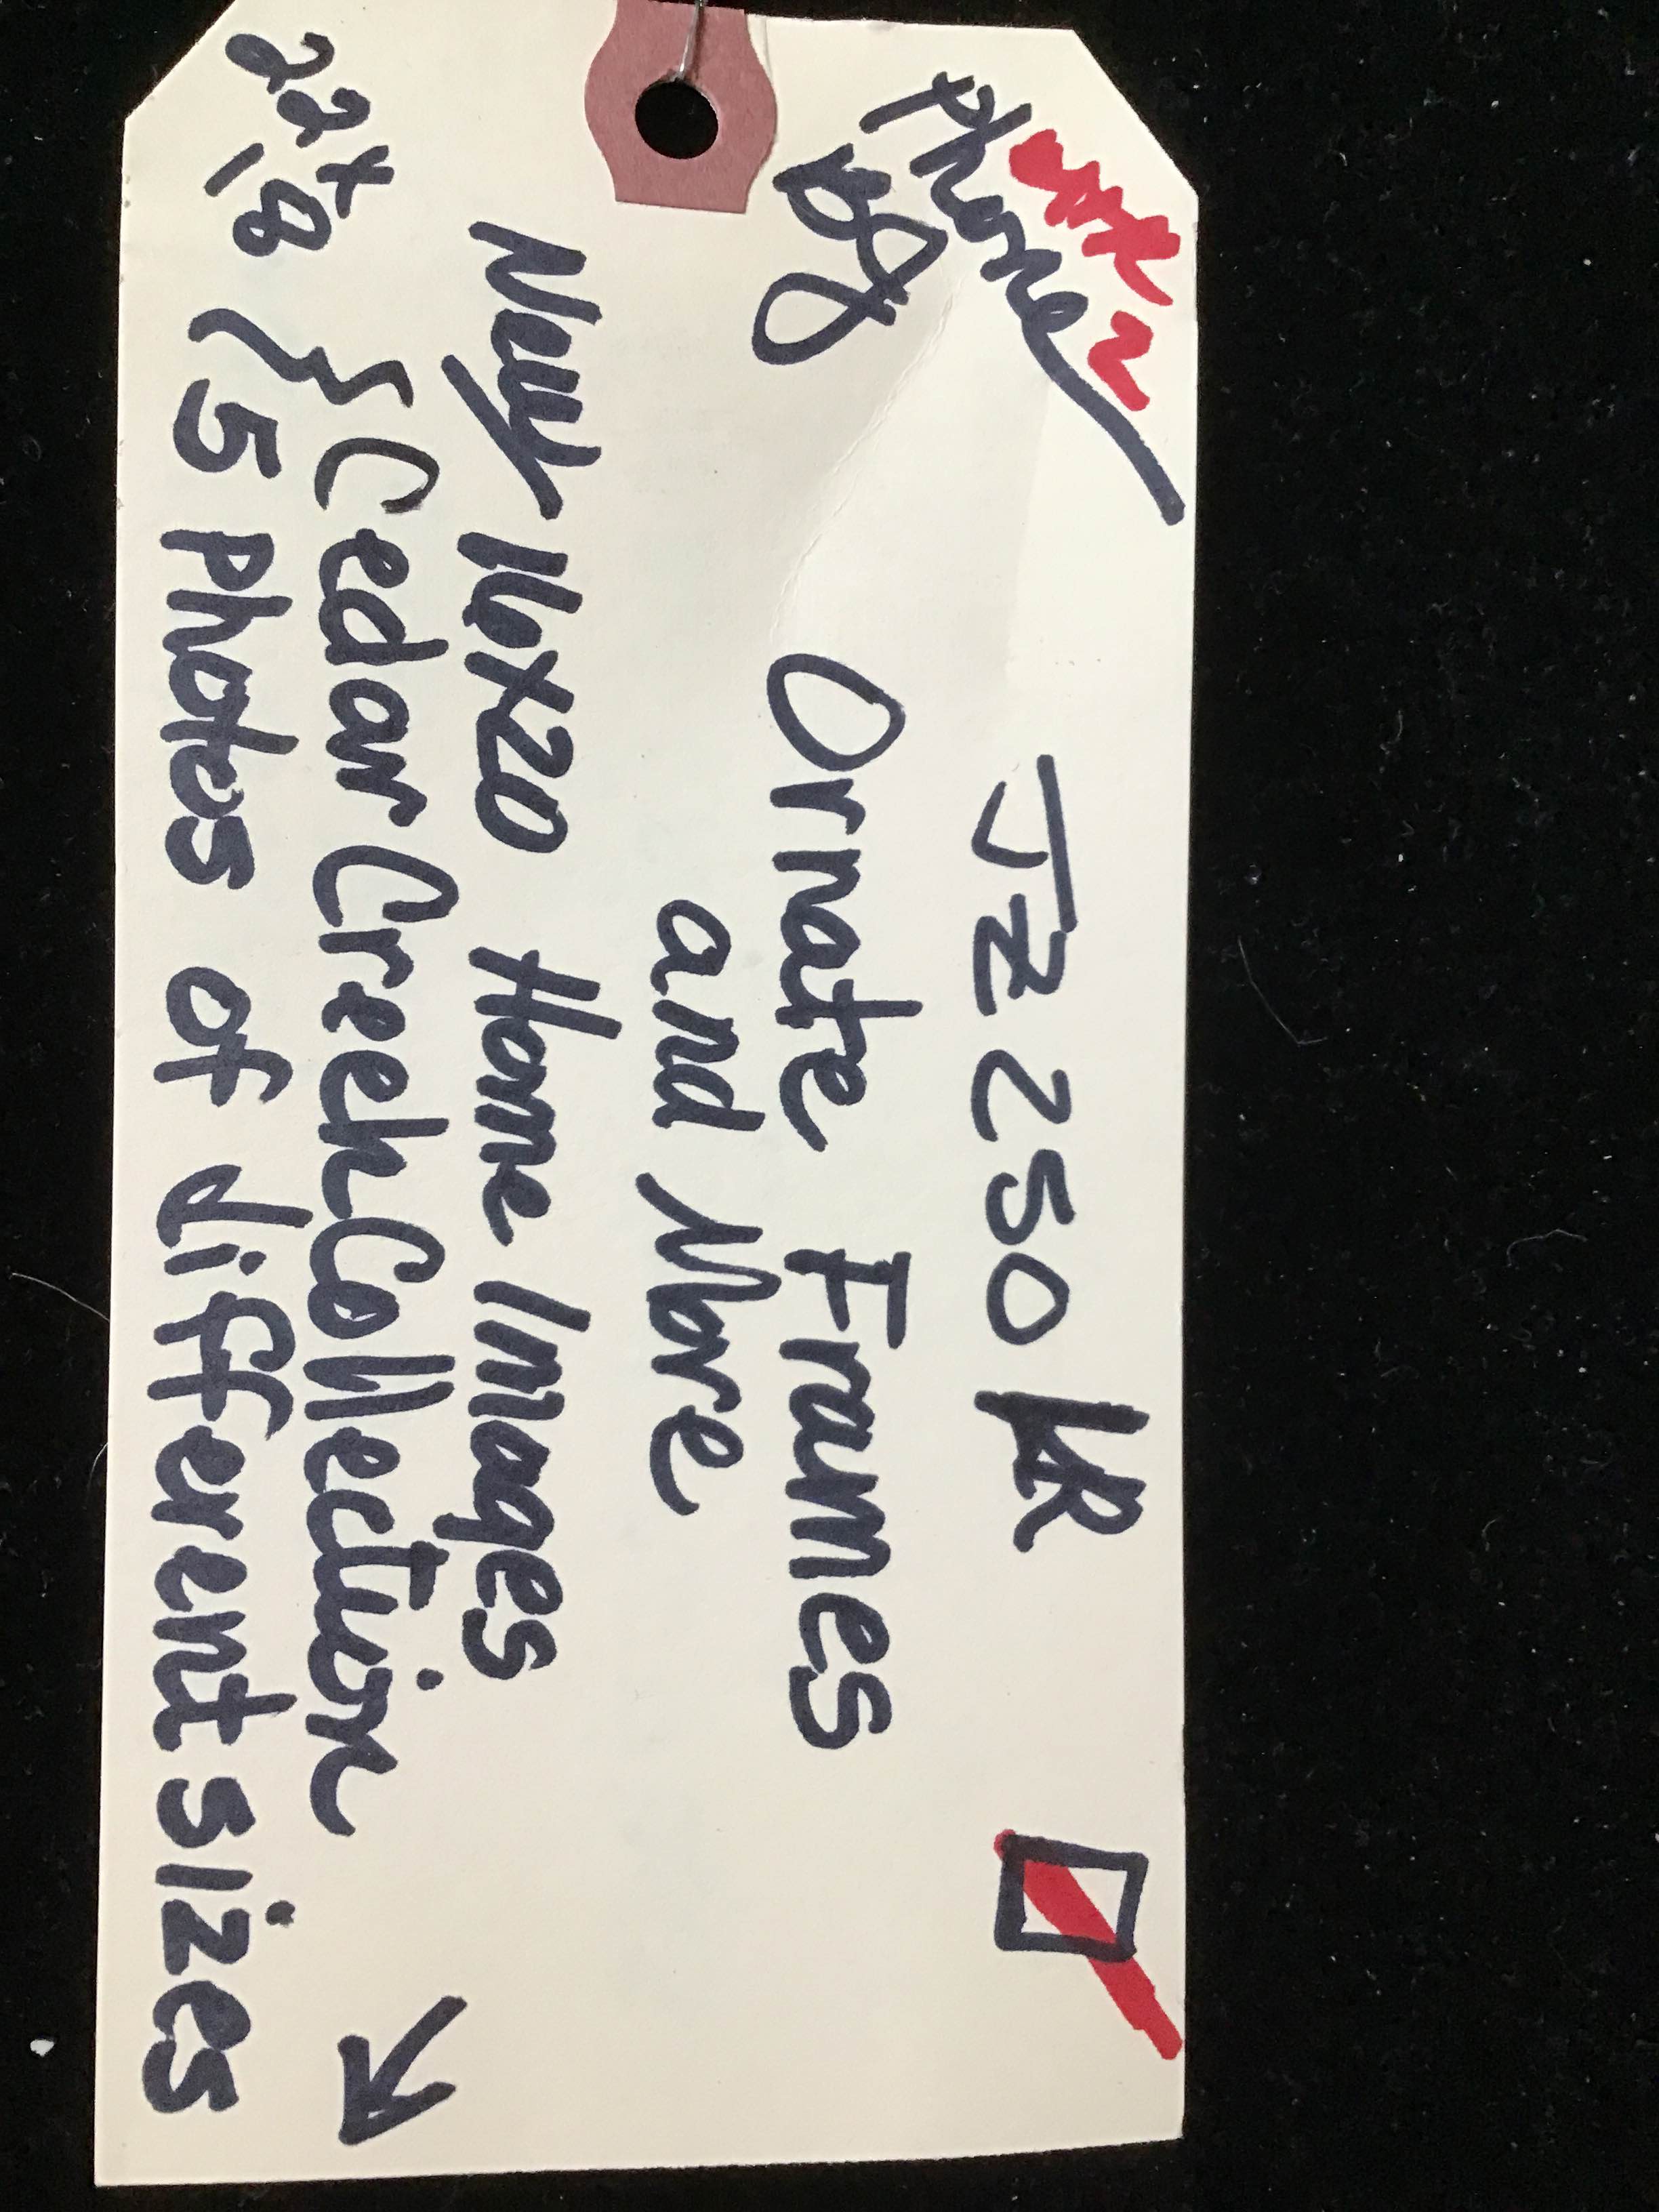 Phone
JZ 250 LR
Ornate Frames
and More
New 16x20 Home Images
22x
18 } Cedar Creek Collection
5 Photos of different sizes